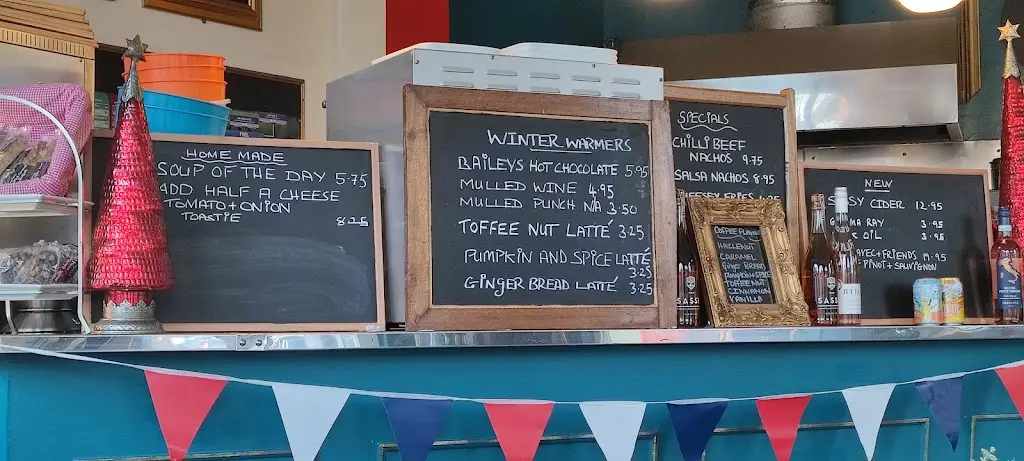 HOME MADE
SOUP OF THE DAY 5.75
ADD HALF A CHEESE
TOMATO + ONION
TOASTIE 8.25
WINTER WARMERS
BAILEYS HOT CHOCOLATE 5.95
MULLED WINE 4.95
MULLED PUNCH NA 3.50
TOFFEE NUT LATTÉ 3.25
PUMPKIN AND SPICE LATTÉ
3.25
GINGER BREAD LATTÉ 3.25
SPECIALS
CHILLI BEEF
NACHOS 9.75
SALSA NACHOS 8.95
FRIES
COFFEE
HAZELNUT
CARAMEL
GINGER BREAD
PUMPKIN + SPICE
TOFFEE NUT
CINNAMON
VANILLA
NEW
CIDER 12.95
RAY 3.95
OIL 3.95
+ FRIENDS 19.95
PINOT + SAUVIGNON
SASSY